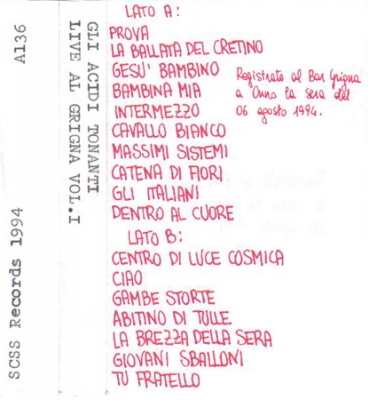 A136
SCSS Records 1994
GLI ACIDI TONANTI
LIVE AL GRIGNA VOL.I
LATO A:
PROVA
LA BALLATA DEL CRETINO
GESU' BAMBINO
BAMBINA MIA
INTERMEZZO
CAVALLO BIANCO
MASSIMI SISTEMI
CATENA DI FIORI
GLI ITALIANI
DENTRO AL CUORE
Registrato al Bar Grigna
a Onno la sera del
06 agosto 1994.
LATO B:
CENTRO DI LUCE COSMICA
CIAO
GAMBE STORTE
ABITINO DI TULLE
LA BREZZA DELLA SERA
GIOVANI SBALLONI
TU FRATELLO